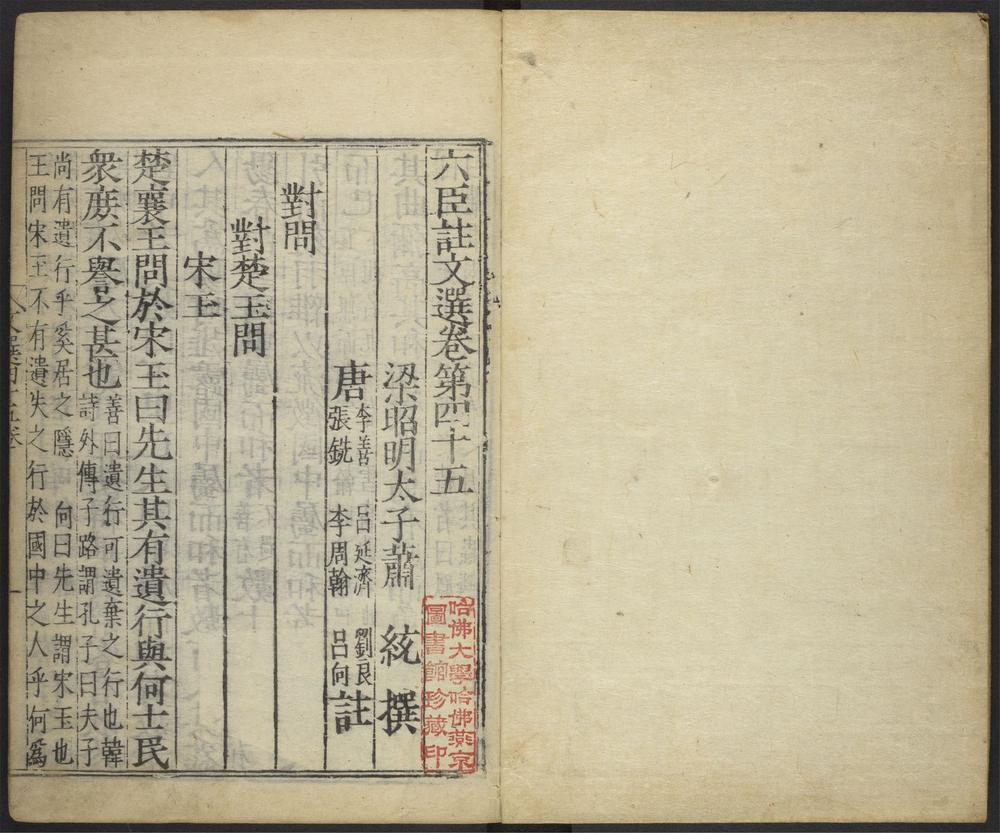 六臣註文選卷第四十五
梁昭明太子蕭　統　撰
唐　李善　呂延濟　劉良
張銑　李周翰　呂向　註
對問
對楚王問
宋玉
楚襄王問於宋玉曰先生其有遺行與何士民
衆庻不譽之甚也
善曰遺行可遺棄之行也韓
詩外傳子路謂孔子曰夫子
尚有遺行乎奚居之隱　向曰先生謂宋玉也
王問宋玉不有遺失之行於國中之人乎何爲
哈佛大學哈佛燕京
圖書館珍藏印